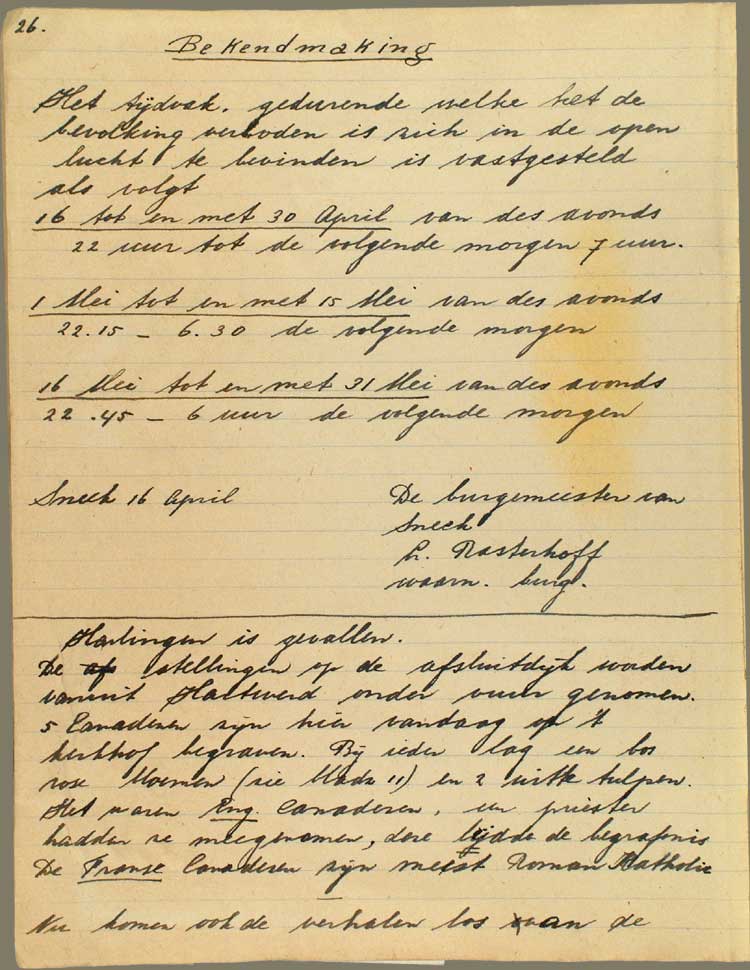 26.
Bekendmaking
Het tijdvak. gedurende welke het de
bevolking verboden is zich in de open
lucht te bevinden is vastgesteld
als volgt
16 tot en met 30 April van des avonds
22 uur tot de volgende morgen 7 uur.
1 Mei tot en met 15 Mei van des avonds
22.15 – 6.30 de volgende morgen
16 Mei tot en met 31 Mei van des avonds
22.45 – 6 uur de volgende morgen
Sneek 16 April
De burgemeester van
Sneek
L. Rasterhoff
waarn. burg.
Harlingen is gevallen.
De stellingen op de afsluitdijk worden
vanuit Hartwerd onder vuur genomen.
5 Canadezen zijn hier vandaag op 't
kerkhof begraven. Bij ieder lag een bos
rose bloemen (zie bladz 11) en 2 witte tulpen.
Het waren Eng. Canadezen, een priester
hadden ze meegenomen, deze lijdde de begrafenis
De Franse Canadezen zijn meest Roman Katholic
Nu komen ook de verhalen los van de